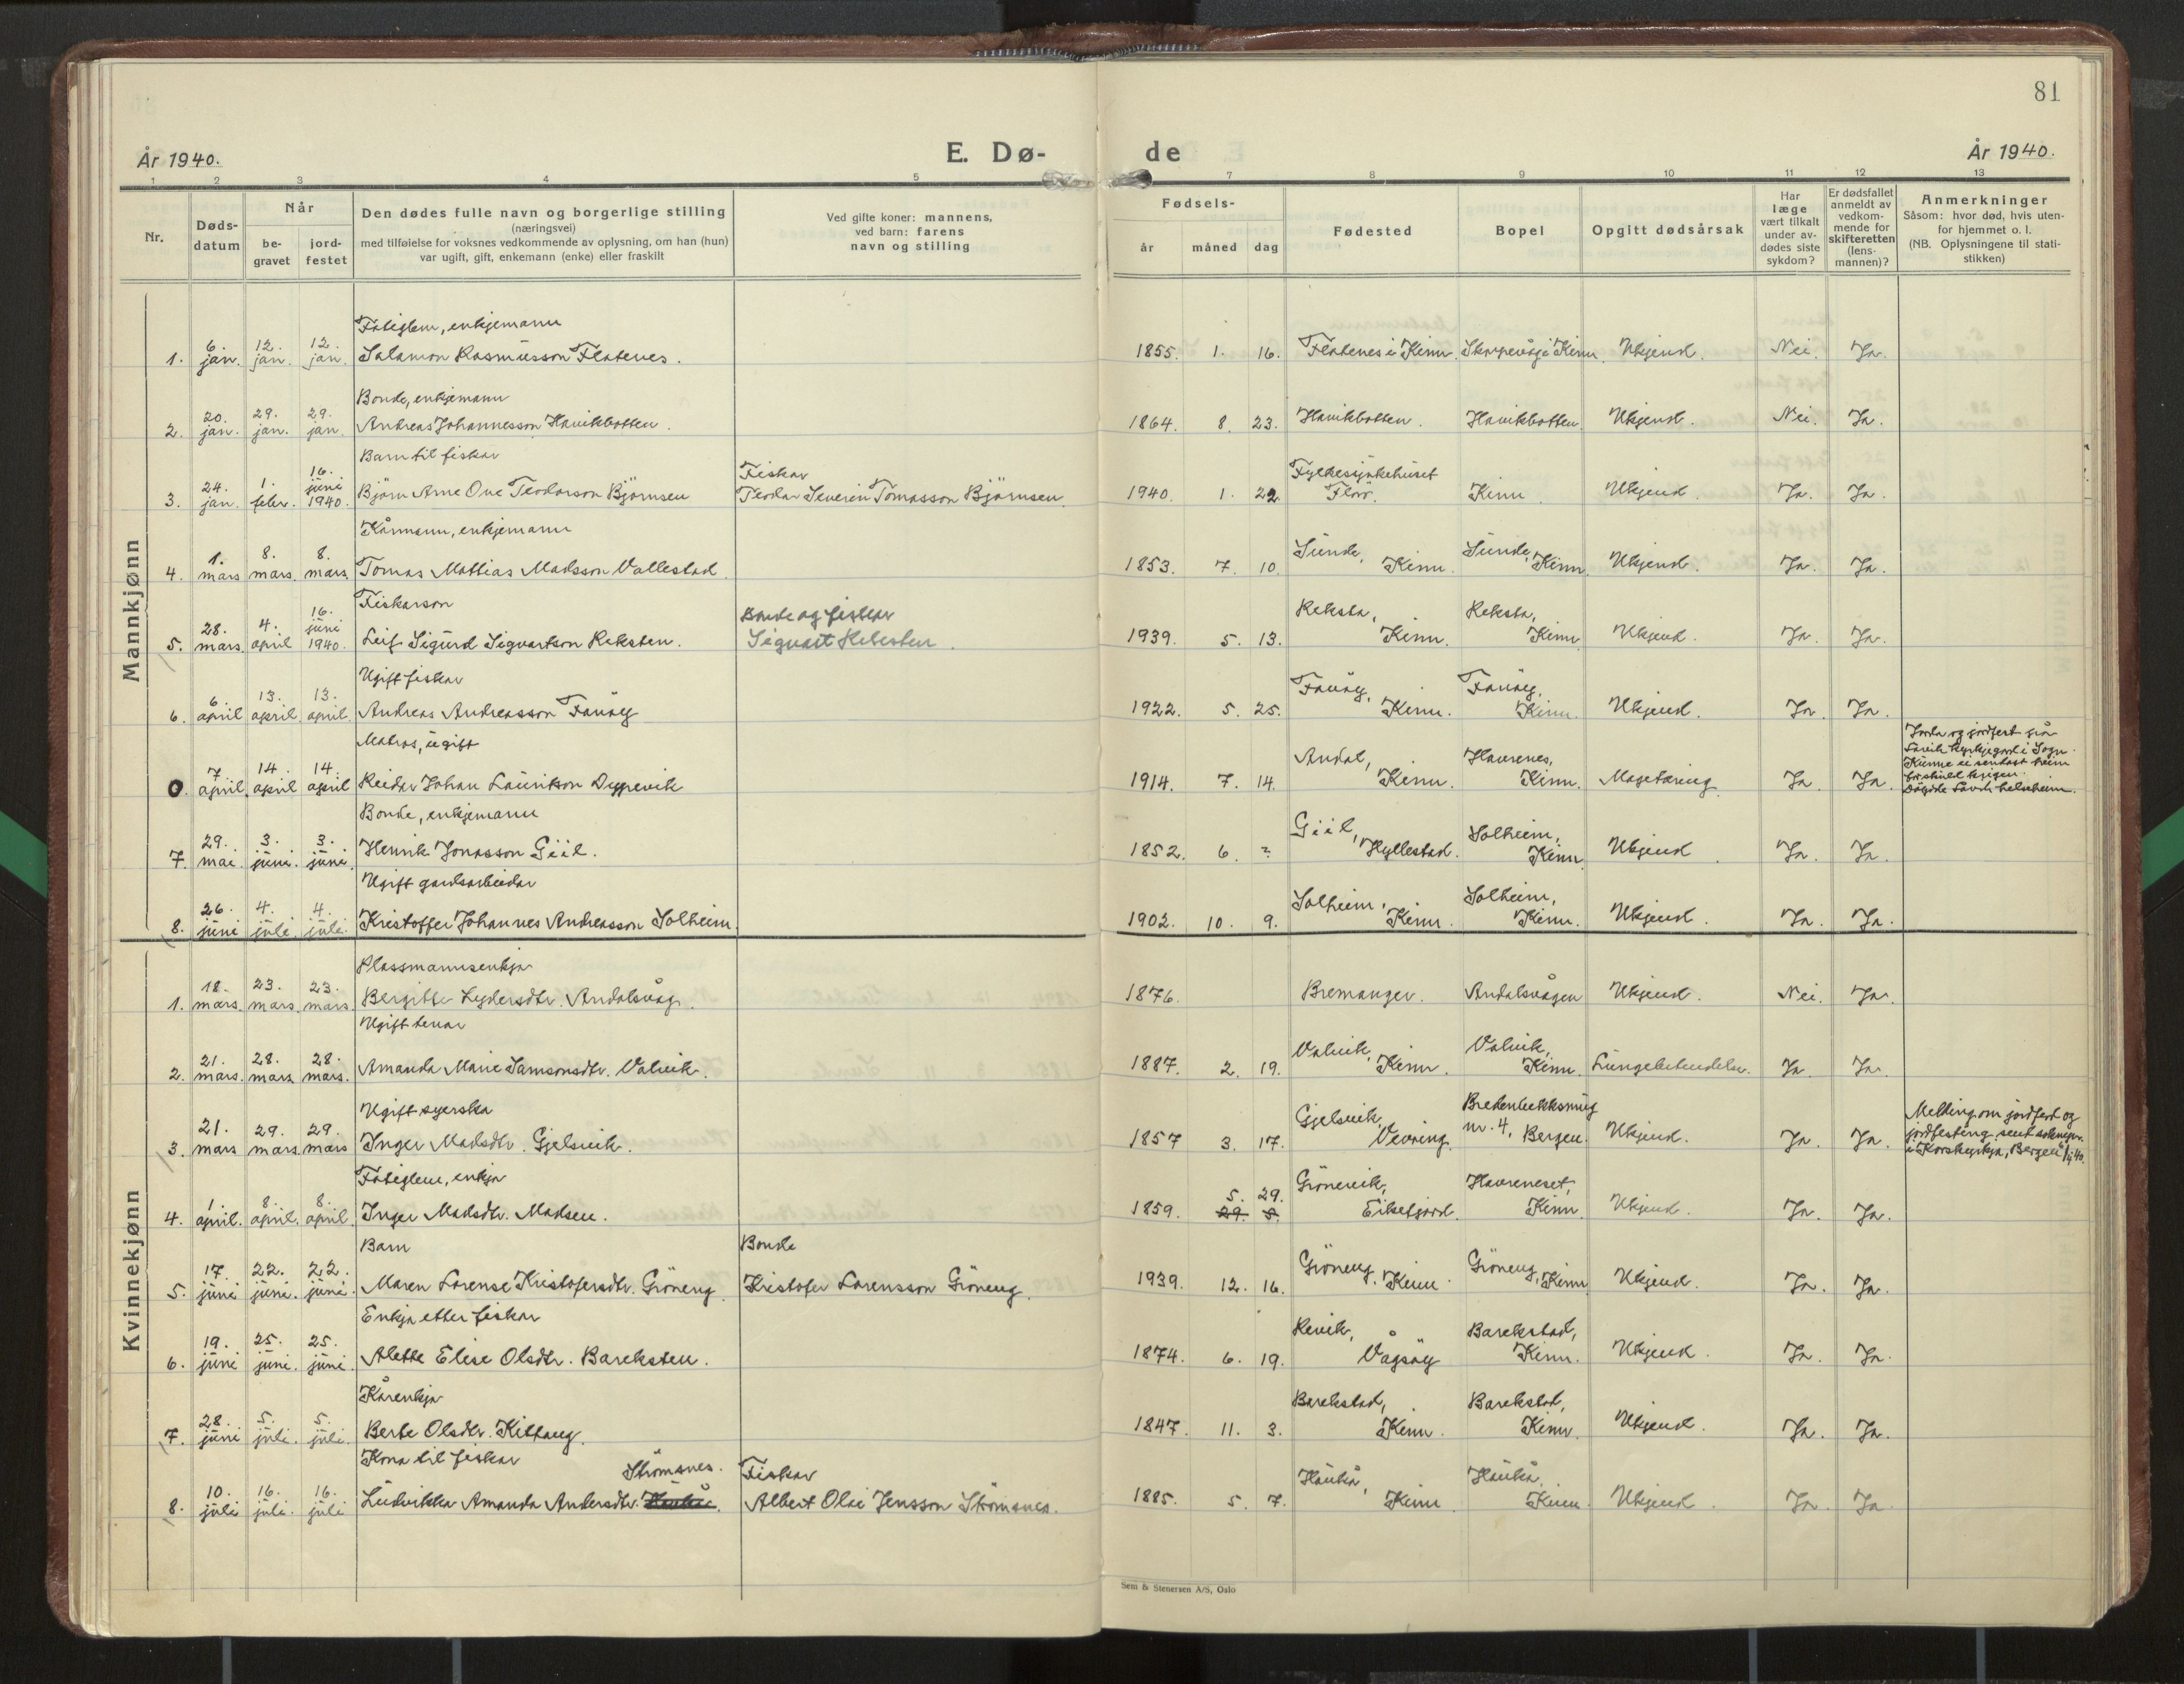 81
År 1940.
E. Dø-
de
År 1940.
1 2 3 4 5 7 8 9 10 11 12 13
Nr.
Døds-
datum
Når
be-
gravet
jord-
festet
Den dødes fulle navn og borgerlige stilling
(næringsvei)
med tilføielse for voksnes vedkommende av oplysning, om han (hun)
var ugift, gift, enkemann (enke) eller fraskilt
Ved gifte koner: mannens,
ved barn: farens
navn og stilling
Fødsels-
år måned dag
Fødested
Bopel
Opgitt dødsårsak
Har
læge
vært tilkalt
under av-
dødes siste
sykdom?
Er dødsfallet
anmeldt av
vedkom-
mende for
skifteretten
(lens-
mannen)?
Anmerkninger
Såsom: hvor død, hvis uten-
for hjemmet o. l.
(NB. Oplysningene til stati-
stikken)
Mannkjønn
Fatiglem, enkjemann
1. 6. jan. 12. jan. 12. jan. Salamon Rasmusson Flatenes. 1855. 1. 16. Flatenes i Kinn. Skorpevåg i Kinn. Ukjend. Nei. Ja.
Bonde, enkjemann
2. 20. jan. 29. jan. 29. jan. Andreas Johannesson Havikbotten. 1864. 8. 23. Havikbotten. Havikbotten. Ukjend. Nei. Ja.
Barn til fiskar
Fiskar
Fylkessjukehuset
3. 24. jan. 1. febr. 16. juni 1940. Bjørn Arne Ove Teodorson Bjørnsen Teodor Severin Tomasson Bjørnsen. 1940. 1. 22. Florø. Kinn. Ukjend. Ja. Ja.
Kårmann, enkjemann
4. 1. mars 8. mars. 8. mars. Tomas Mattias Madsson Vallestad. 1853. 7. 10. Sunde, Kinn. Sunde, Kinn. Ukjend. Ja. Ja.
Fiskarson
Bonde og fiskar
5. 28. mars. 4. april 16. juni 1940. Leif Sigurd Sigvartson Reksten. Sigvart Reksten. 1939. 5. 13. Reksta, Kinn. Reksta, Kinn. Ukjend. Ja. Ja.
Ugift fiskar
6. 6. april 13. april. 13. april. Andreas Andreasson Fanøy 1922. 5. 25. Fanøy, Kinn. Fanøy, Kinn. Ukjend. Ja. Ja.
Matros, ugift
0. 7 april. 14. april 14. april Reidar Johan Lauritson Dyppevik 1914. 7. 14. Andal, Kinn. Havrenes, Kinn. Magetæring Ja Ja
Jorda og jordfest frå
kyrkjegard i Sogn.
Kunne ei sendast heim
krigen.
Bonde, enkjemann
7. 29. mai. 3. juni. 3. juni. Henrik Jonasson Giil. 1852. 6. ? Giil, Hyllestad. Solheim, Kinn Ukjend. Ja. Ja.
Ugift gardsarbeidar
8. 26. juni 4. juli. 4. juli. Kristoffer Johannes Andreasson Solheim. 1902. 10. 9. Solheim, Kinn. Solheim, Kinn. Ukjend. Ja. Ja.
Kvinnekjønn
Plassmannsenkja
1. 18. mars. 23. mars. 23. mars. Bergitte Lydersdtr. Andalsvåg. 1876. Bremanger. Andalsvågen Ukjend. Nei. Ja.
Ugift tenar
2. 21. mars. 28. mars. 28. mars. Amanda Marie Samsonsdtr. Valvik. 1887. 2. 19. Valvik, Kinn. Valvik, Kinn. Lungebetendelse. Ja. Ja.
Ugift syerska
3. 21. mars 29. mars. 29. mars Inger Madsdtr. Gjelsvik. 1857 3. 17. Gjelsvik, Vevring. Bredenbekksmug nr. 4, Bergen. Ukjend. Ja. Ja.
Melding om jordferd og
jordfesting sendt soknepr.
i Korskyrkja, Bergen
Fatiglem, enkja
4. 1 april. 8. april. 8. april. Inger Madsdtr. Madsen. 1859. 5. 29. 29. 8. Grønevik, Eikefjord. Havreneset, Kinn. Ukjend. Ja. Ja.
Barn
Bonde
5. 17. juni 22. juni. 22. juni. Maren Lorense Kristofersdtr. Grøneng. Kristofer Lorensson Grøneng. 1939. 12. 16. Grøneng, Kinn. Grøneng, Kinn Ukjend. Ja. Ja.
Enkja etter fiskar
6. 19. juni 25. juni. 25. juni. Alette Elise Olsdtr. Bareksten. 1874. 6. 19. Revik, Vågsøy Barekstad, Kinn. Ukjend. Ja. Ja.
Kårenkja
7. 28. juni 5. juli. 5. juli. Berte Olsdtr. Kittang. 1847. 11. 3. Barekstad, Kinn. Barekstad, Kinn. Ukjend. Ja. Ja.
Kona til fiskar
Strømsnes.
Fiskar
8. 10. juli 16. juli. 16. juli Ludvikka Amanda Andersdtr. Albert Olai Jensson Strømsnes. 1885. 5. 7. Haukå, Kinn Haukå, Kinn Ukjend. Ja. Ja.
Sem & Stenersen A/S, Oslo